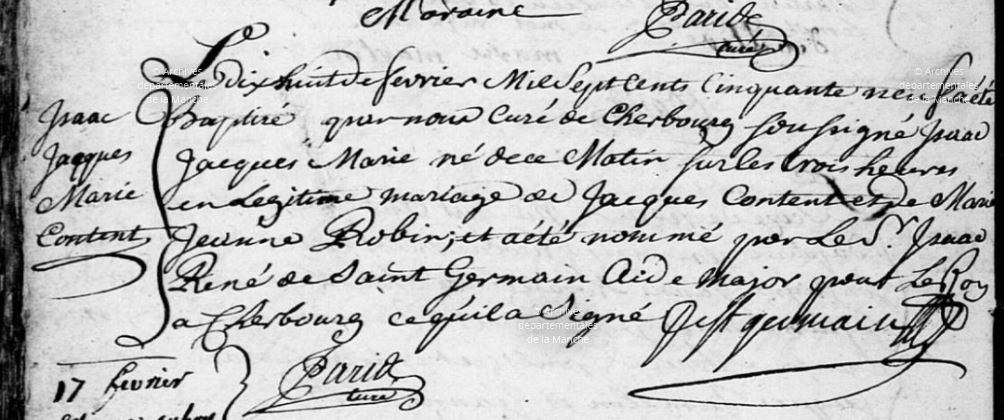 Moraine
Paris
curé
Isaac
Jacques
Marie
Content
Le dix huit de fevrier Mil Sept Cents Cinquante neuf a été
Baptisé par nous Curé de Cherbourg soussigné Isaac
Jacques Marie né de ce Matin sur les trois heures
en Légitime mariage de Jacques Content et de Marie
Jeanne Robin, et a été nommé par Le Sr. Isaac
René de Saint Germain Aide major pour Le Roy
a Cherbourg ce qu'il a Signé De St germain
Paris
curé
17 fevrier
© Archives
départementales
de la Manche
© Archives
départementales
de la Manche
© Archives
départementales
de la Manche